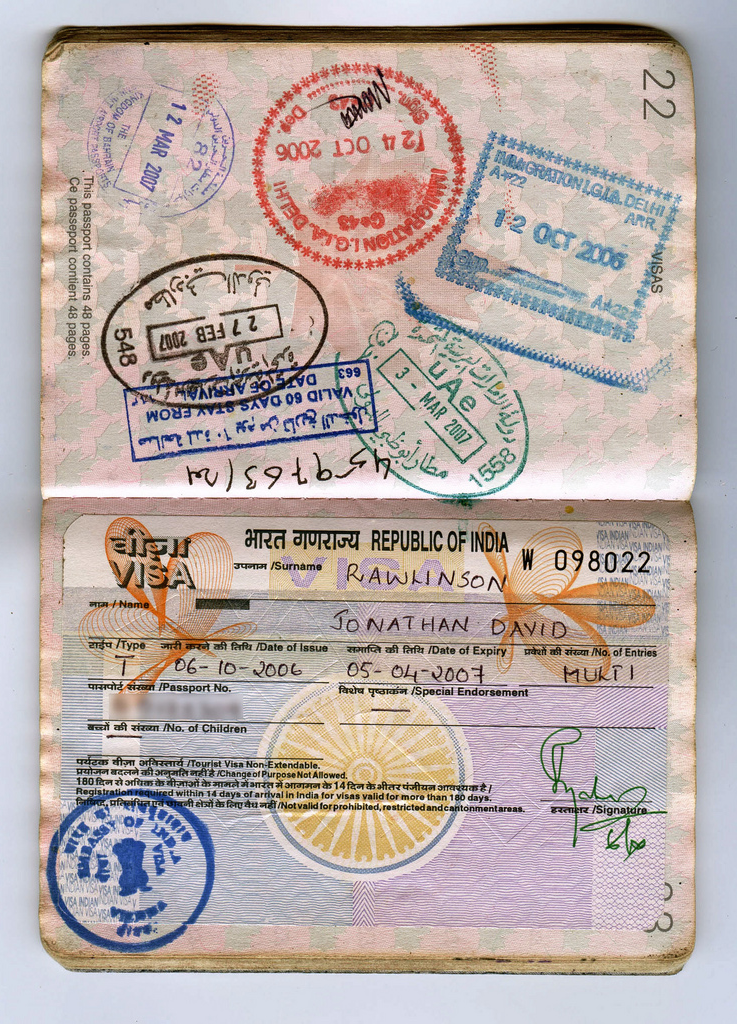 22
VISAS
This passport contains 48 pages.
Ce passeport contient 48 pages.
THE
KINGDOM OF BAHRAIN
12 MAR 2007
82
Dep.
24 OCT 2006
IMMIGRATION I.G.I.A. DELHI
IMMIGRATION I.G.I.A. DELHI
A-22 ARR.
12 OCT 2006
A-22
27 FEB 2007
UAe
548
UAe
3 - MAR 2007
1558
663
VALID 60 DAYS STAY FROM
DATE OF ARRIVAL
459763/24
वीज़ा
VISA
भारत गणराज्य REPUBLIC OF INDIA
W 098022
उपनाम /Surname RAWLINSON
नाम / Name JONATHAN DAVID
टाईप /Type जारी करने की तिथि /Date of Issue समाप्ति की तिथि /Date of Expiry प्रवेशों की संख्या /No. of Entries
T 06-10-2006 05-04-2007 MULTI
पासपोर्ट संख्या /Passport No. विशेष पृष्ठाकंन /Special Endorsement
बच्चों की संख्या /No. of Children
पर्यटक वीज़ा अविस्तार्य /Tourist Visa Non-Extendable.
प्रयोजन बदलने की अनुमति नहीं है /Change of Purpose Not Allowed.
180 दिन से अधिक के वीज़ाओं के मामले में भारत में आगमन के 14 दिन के भीतर पंजीयन आवश्यक है /
Registration required within 14 days of arrival in India for visas valid for more than 180 days.
निषिद्ध, प्रतिबंधित एवं छावनी क्षेत्रों के लिए वैध नहीं /Not valid for prohibited, restricted and cantonment areas.
हस्ताक्षर /Signature
EMBASSY OF INDIA